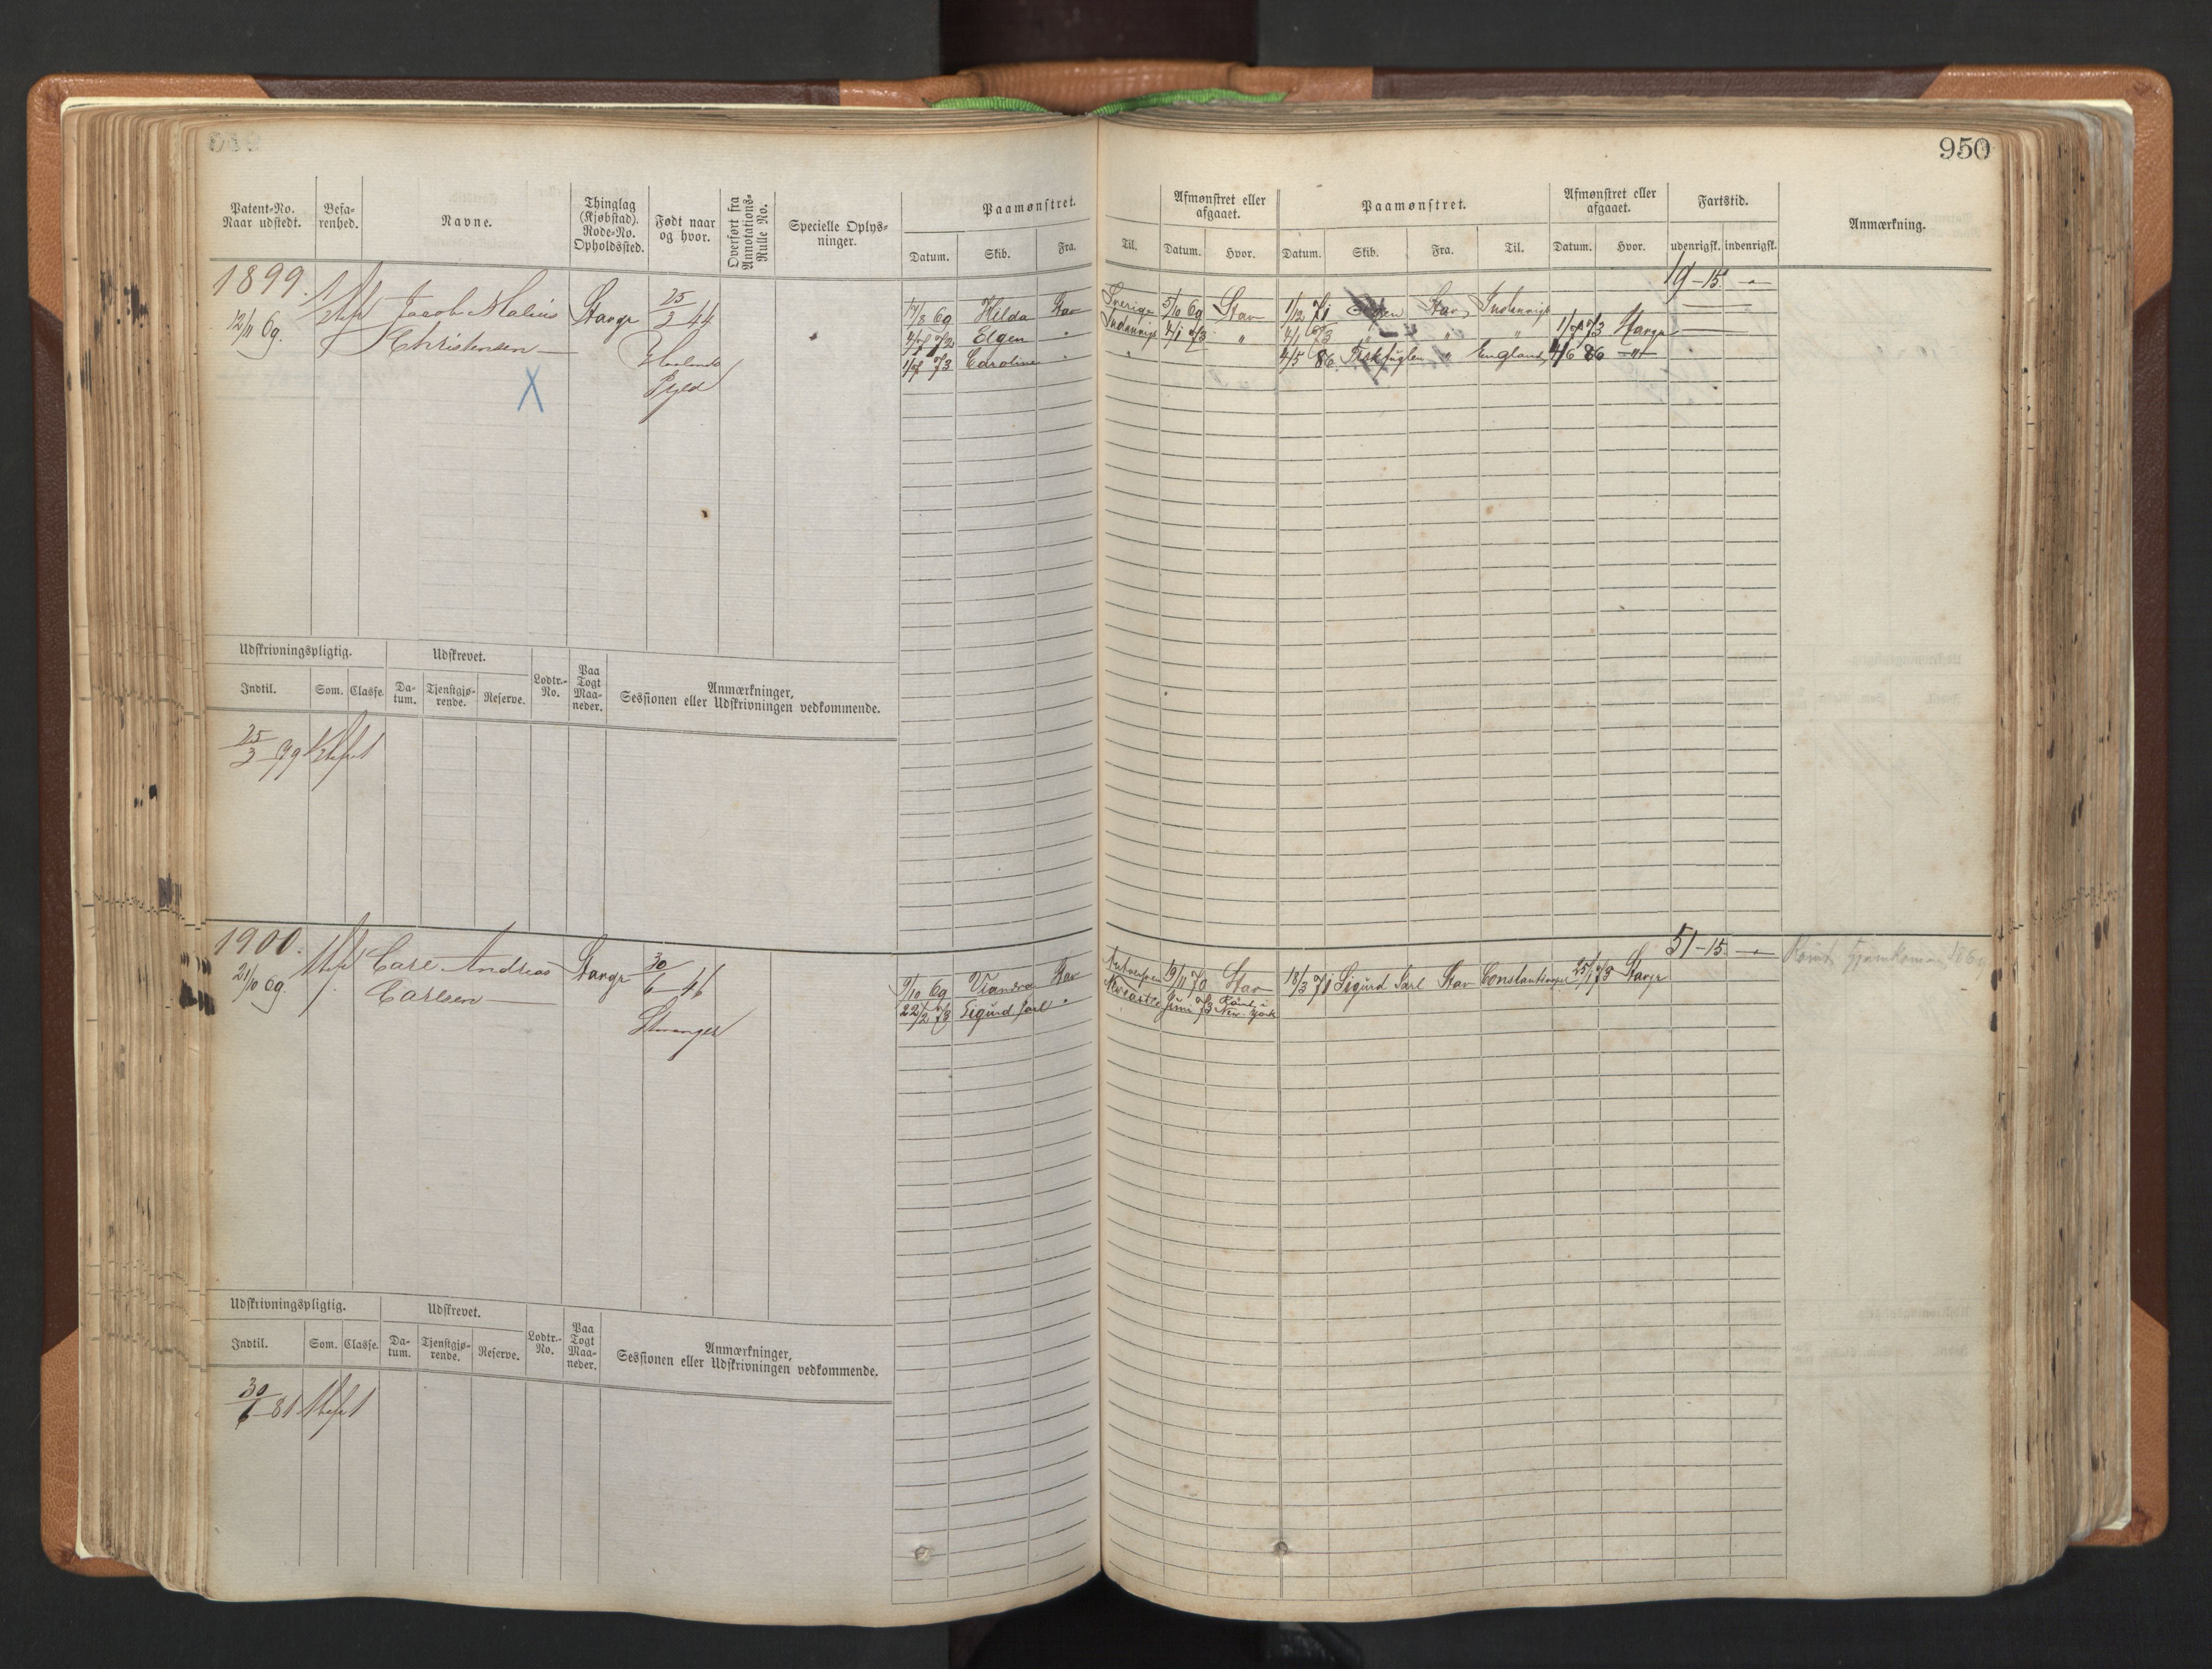 950
Patent-No. Naar udstedt.
Befa-renhed.
Navne.
Thinglag (Kjøbstad). Rode-No. Opholdssted.
Født naar og hvor.
Overført fra Annotations-Rulle No.
Specielle Oplys-ninger.
Paamønstret.
Datum. Skib. Fra. Til.
Afmønstret eller afgaaet.
Datum. Hvor.
Paamønstret.
Datum. Skib. Fra. Til.
Afmønstret eller afgaaet.
Datum. Hvor.
Fartstid.
udenrigsk. indenrigsk.
Anmærkning.
1899. 19-15 "
12/11 69. Jacob Malius Stavgr 25/3 44 17/8 69 Hilda Stav Sverige 5/10 69 Stav 1/12 71 Stav Indenrigs
Christensen Elgen " Indenrigs 4/1 73 " 4/1 73 " " " 1/7 73 Stavgr
Haalands 73 Caroline " " 4/5 86 Fiskfuglen " England 4/6 86 "
X
Udskrivningspligtig. Udskrevet.
Indtil. Som. Classe. Da-tum. Tjenstgjø-rende. Reserve. Lodtr.-No. Paa Togt Maa-neder.
Anmærkninger, Sessionen eller Udskrivningen vedkommende.
25/3 79
1900. 51-15 "
21/10 69. Carl Andreas Stavgr 30/6 46 9/10 69 Stav Antwerpen 19/11 70 Stav 18/3 71 Sigurd Jarl Stav Constantinopel 25/1 73 Stavgr
Carlsen 22/2 73 Sigurd Jarl " Juni 73 Rømt i New-York
Stavanger
Udskrivningspligtig. Udskrevet.
Indtil. Som. Classe. Da-tum. Tjenstgjø-rende. Reserve. Lodtr.-No. Paa Togt Maa-neder.
Anmærkninger, Sessionen eller Udskrivningen vedkommende.
30/6 81